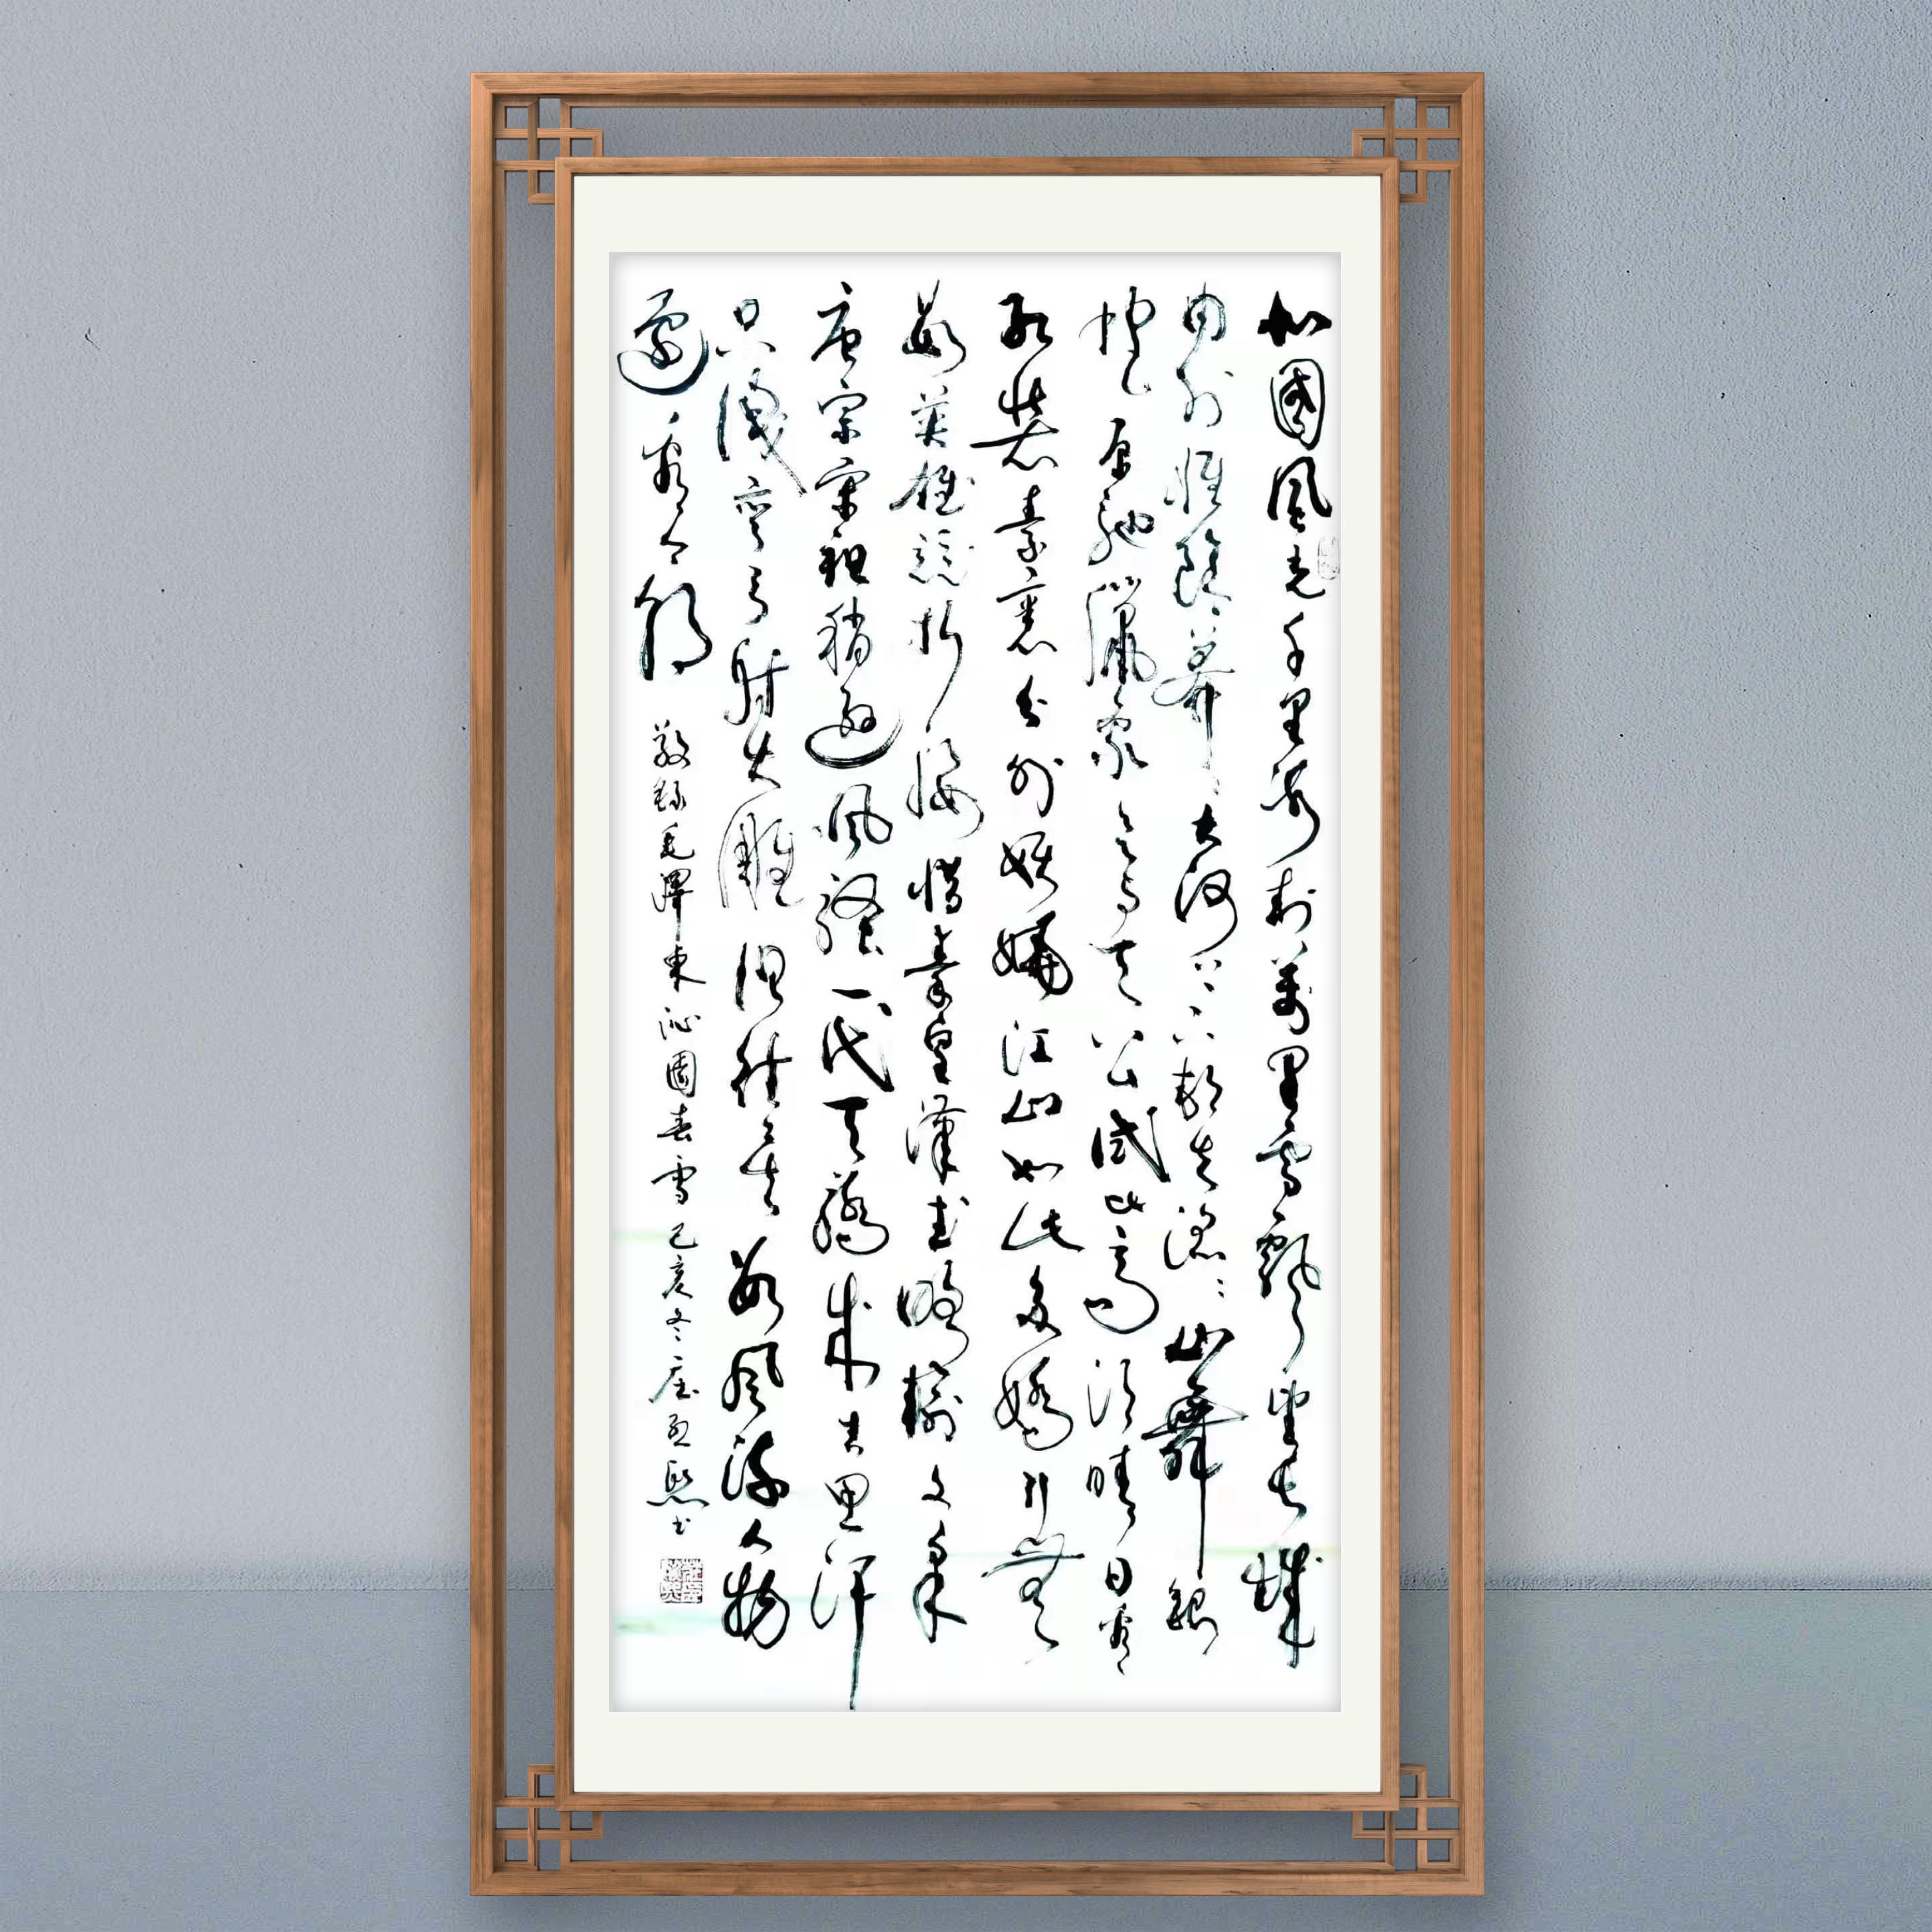 北國風光千里冰封萬里雪飄望長城
內外惟餘莽〻大河上下頓失滔〻山舞銀
蛇原馳蠟象欲與天公試比高須晴日看
紅裝素裹分外妖嬈江山如此多嬌引無
數英雄競折腰惜秦皇漢武略輸文采
唐宗宋祖稍遜風騷一代天驕成吉思汗
只識彎弓射大雕俱往矣數風流人物
還看今朝 敬錄毛澤東沁園春雪己亥冬莊熙書